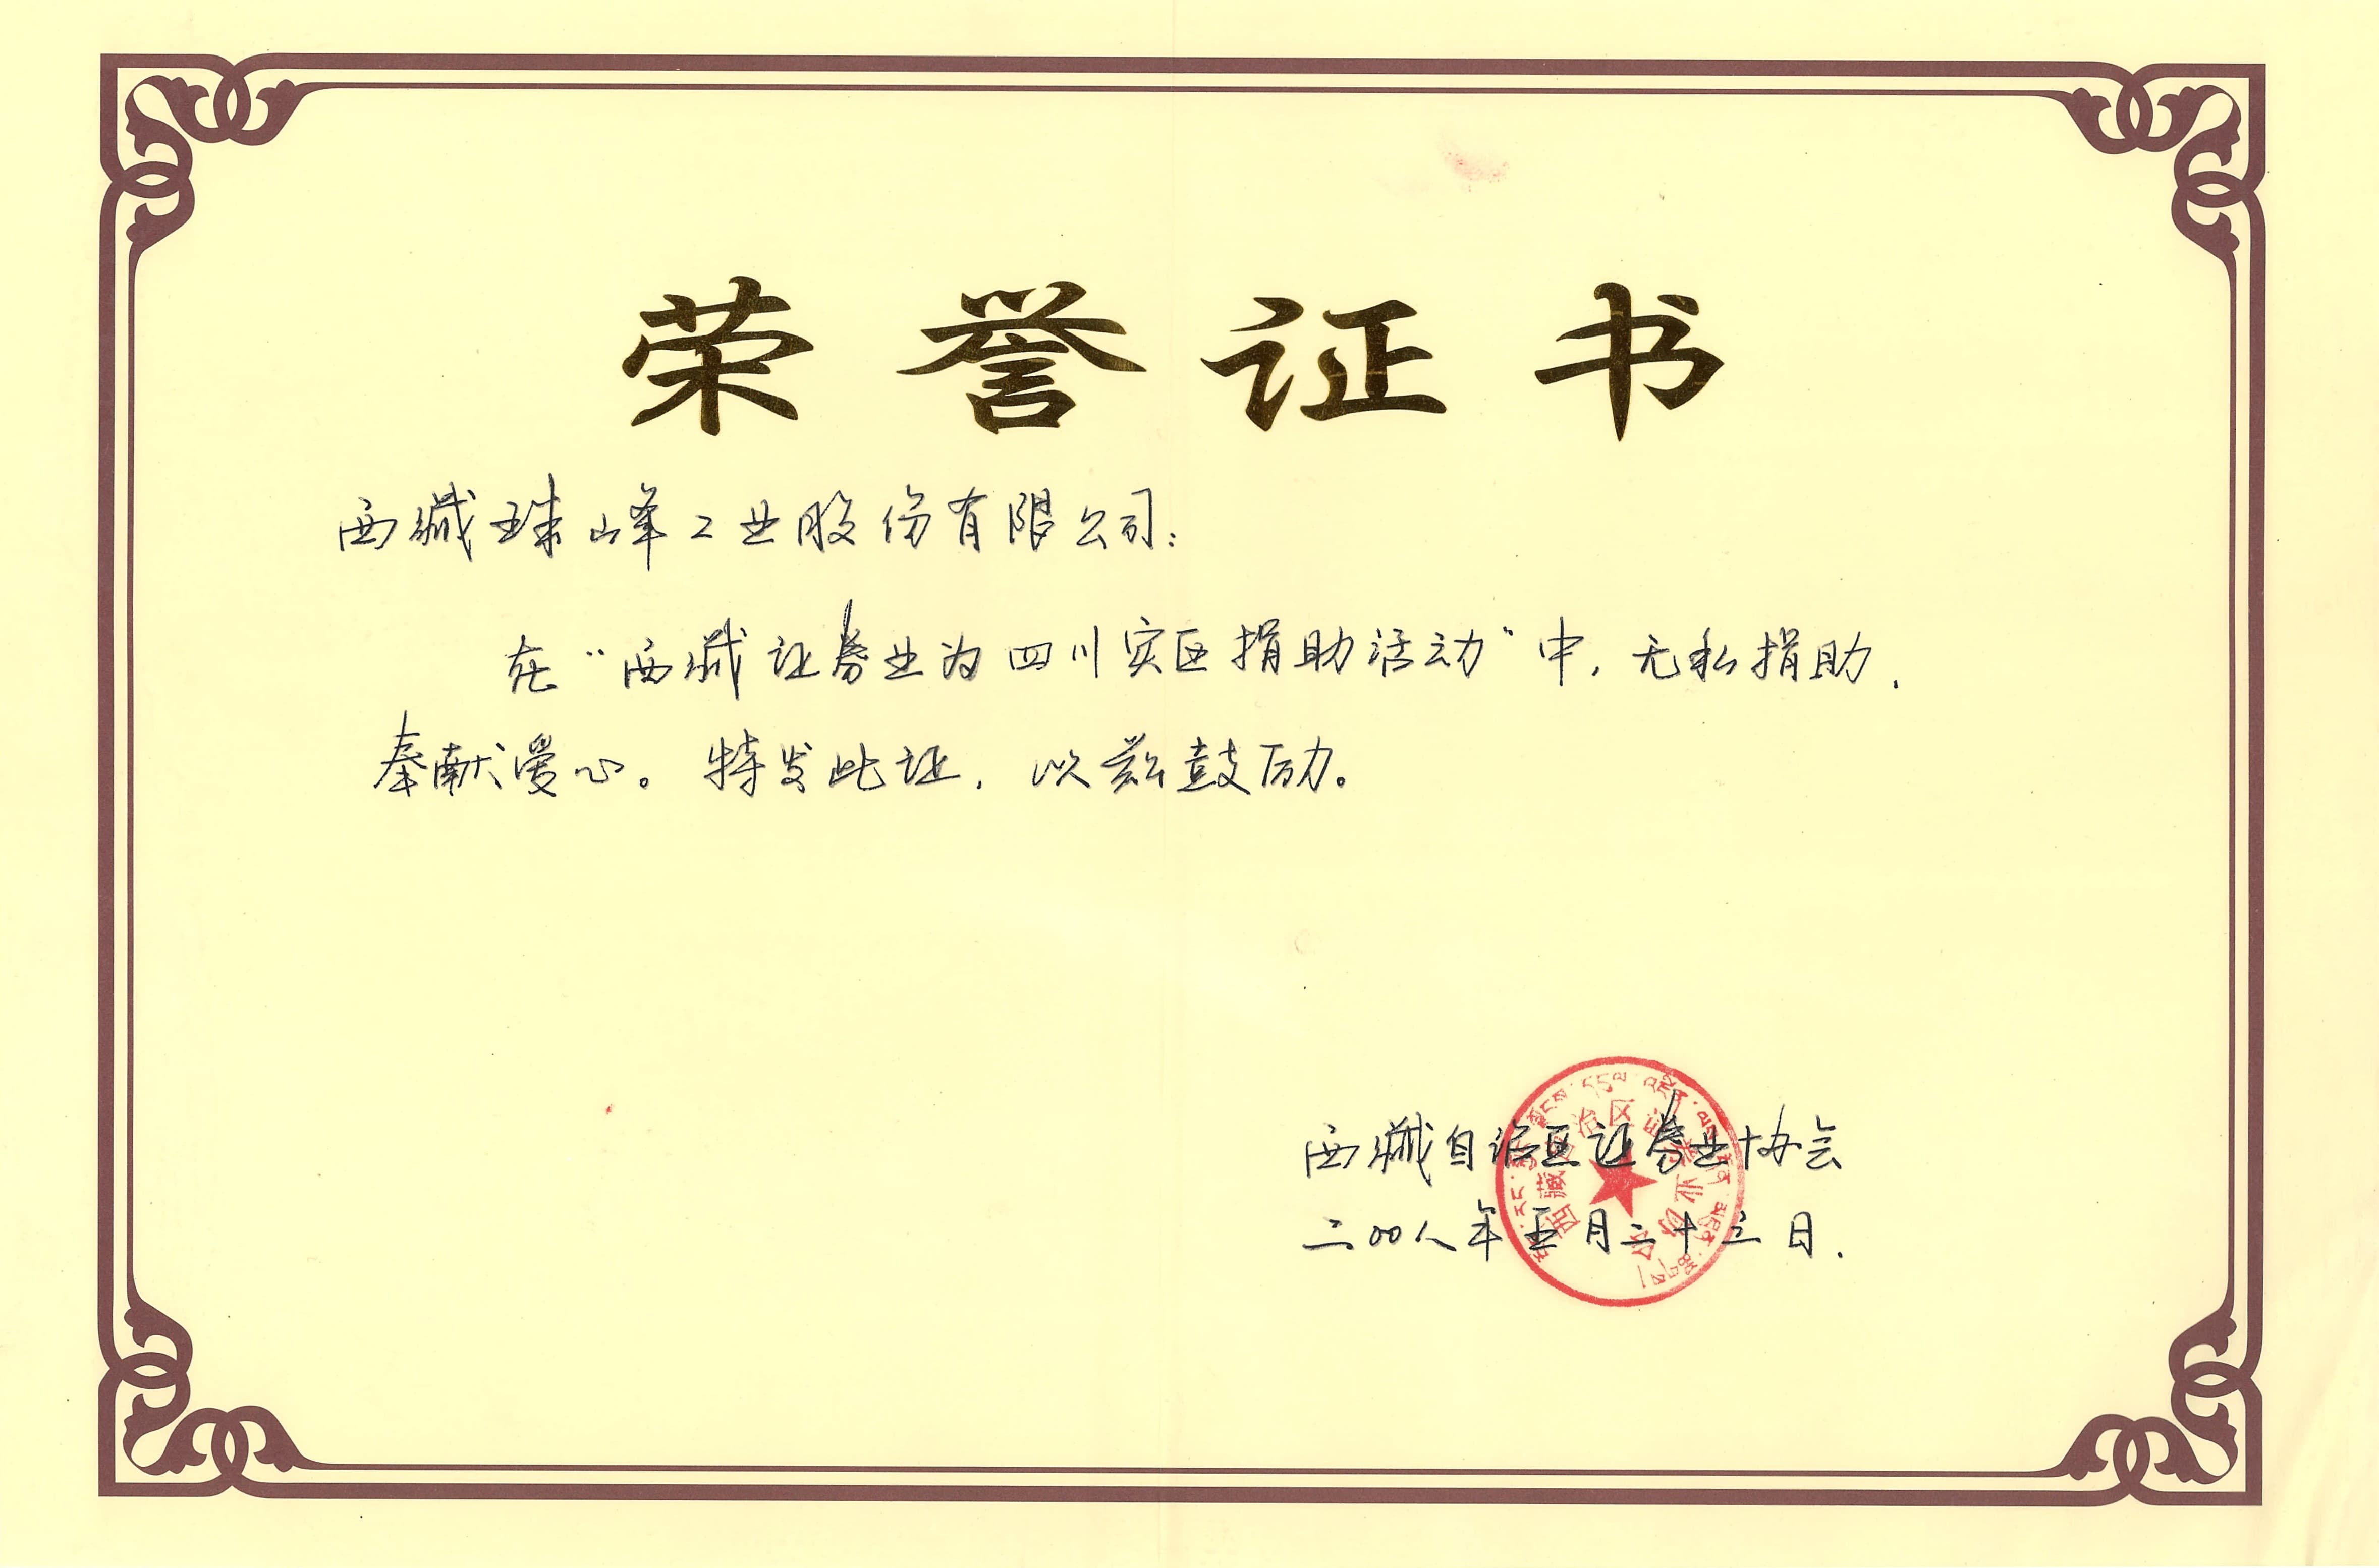 荣誉证书
西藏珠峰工业股份有限公司:
在"西藏证券业为四川灾区捐助活动"中,无私捐助,
奉献爱心。特发此证,以兹鼓励。
西藏自治区证券业协会
二00八年五月二十三日.
西藏自治区证券业协会